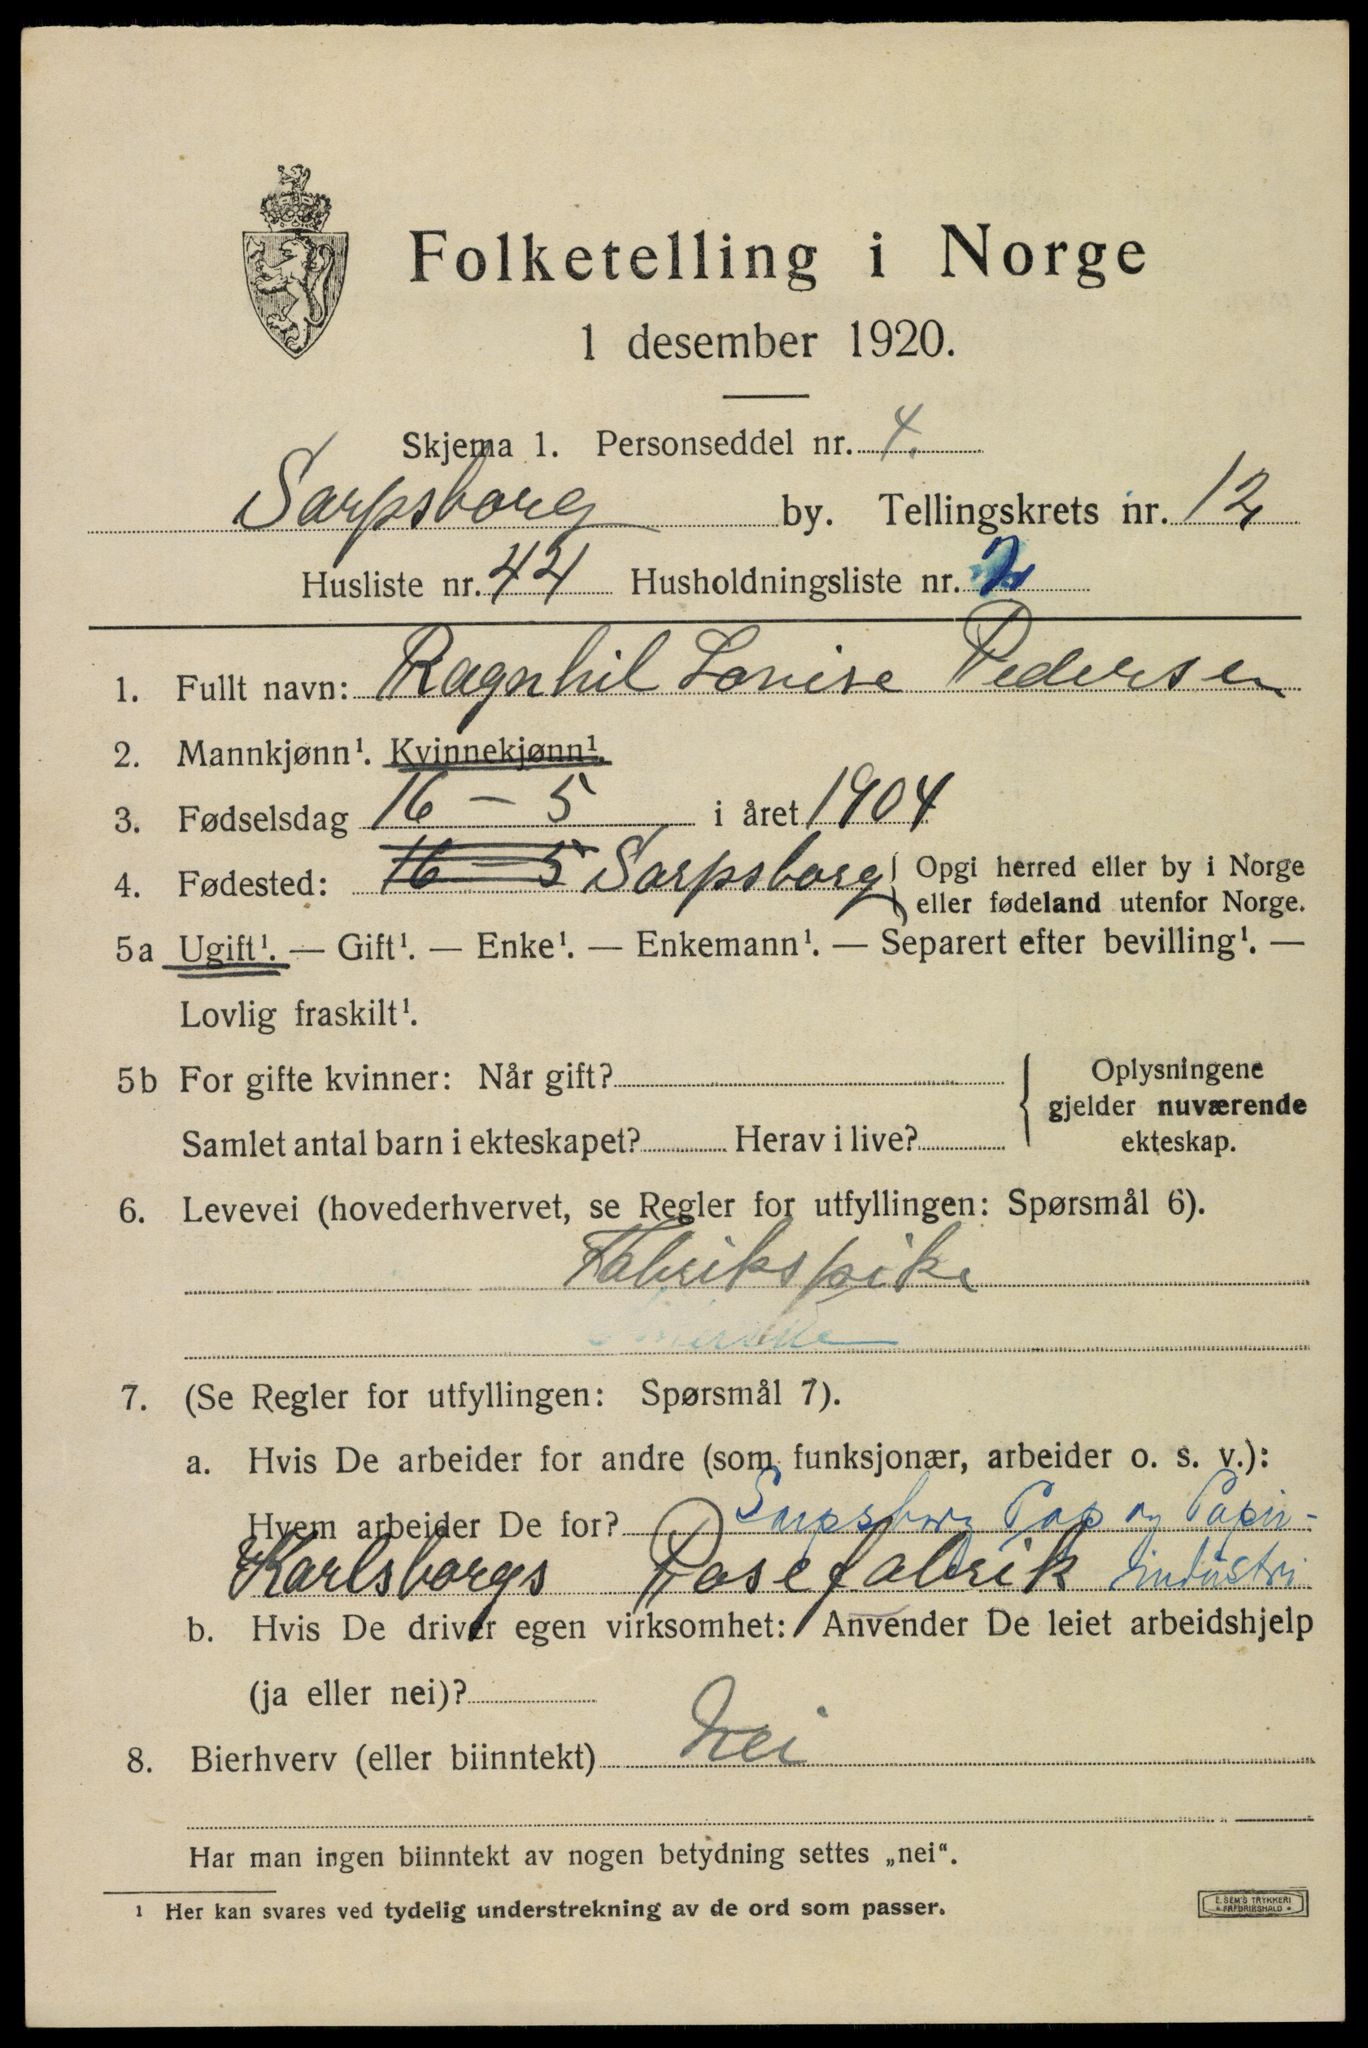 Folketelling i Norge
1 desember 1920.
Skjema 1. Personseddel nr. 4.
Sarpsborg by. Tellingskrets nr. 12
Husliste nr. 44 Husholdningsliste nr. 2
1. Fullt navn: Ragnhil Lovise Pedersen
2. Mannkjønn¹. Kvinnekjønn¹.
3. Fødselsdag 16 - 5 i året 1904
4. Fødested: 16 - 5 Sarpsborg { Opgi herred eller by i Norge
eller fødeland utenfor Norge.
5a Ugift¹. — Gift¹. — Enke¹. — Enkemann¹. — Separert efter bevilling¹. —
Lovlig fraskilt¹.
5b For gifte kvinner: Når gift?
Samlet antal barn i ekteskapet? Herav i live?
Oplysningene
gjelder nuværende
ekteskap.
6. Levevei (hovederhvervet, se Regler for utfyllingen: Spørsmål 6).
Fabrikspike
7. (Se Regler for utfyllingen: Spørsmål 7).
a. Hvis De arbeider for andre (som funksjonær, arbeider o. s. v.):
Hvem arbeider De for? Sarpsborg Pap og Papir-
Karlsborgs Posefabrik industri
b. Hvis De driver egen virksomhet: Anvender De leiet arbeidshjelp
(ja eller nei)?
8. Bierhverv (eller biinntekt) Nei
Har man ingen biinntekt av nogen betydning settes „nei“.
¹ Her kan svares ved tydelig understrekning av de ord som passer.
E. SEM'S TRYKKERI
FREDRIKSHALD